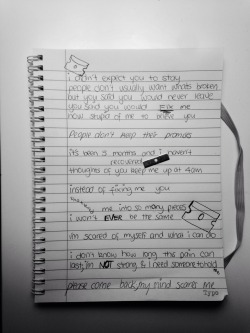 i didn't expect you to stay
people don't usually want what's broken
but you said you would never leave
you said you would FIX me
how stupid of me to believe you
People don't keep their promises
it's been 5 months and i haven't
recovered
thoughts of you keep me up at 4am
instead of fixing me you
me into so many pieces
i won't EVER be the same
i'm scared of myself and what i can do
i don't know how long this pain can
last, i'm NOT strong & i need someone to hold
please come back, my mind scares me